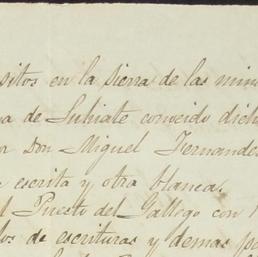 sitos en la sierra de las min
a de Suhiate conocido dich
or Don Miguel Fernandes
e escrita y otra blanca.
l Puesto del Gallego con
los de escrituras y demas pa